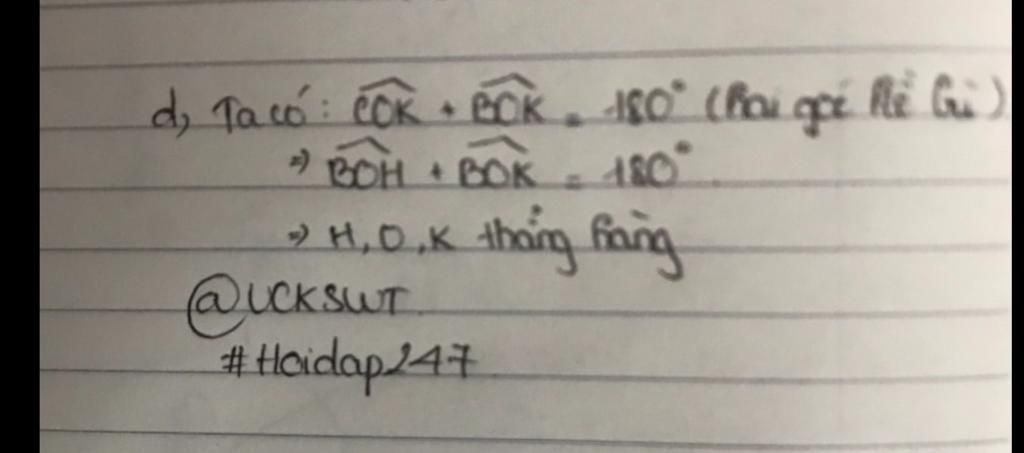 d, Ta có: $\widehat{COK}$ + $\widehat{BOK}$ = 180° (hai góc kề bù)
=> $\widehat{BOH}$ + $\widehat{BOK}$ = 180°.
=> H, O, K thẳng hàng
@UCKSWT
#Hoidap247